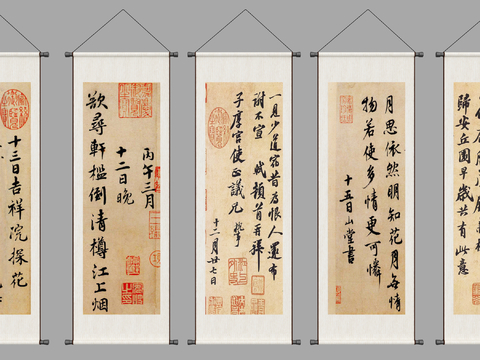 歸安丘園早歲共有此意
月思依然明知花月無情
物若使多情更可憐
十五日山堂書
一見少道宿昔為恨人還布
謝不宣 軾頓首再拜
子厚宮使正議兄 執事
十二月廿七日
丙午三月
十二日晚
欲尋軒檻倒清樽江上烟
十三日吉祥院探花